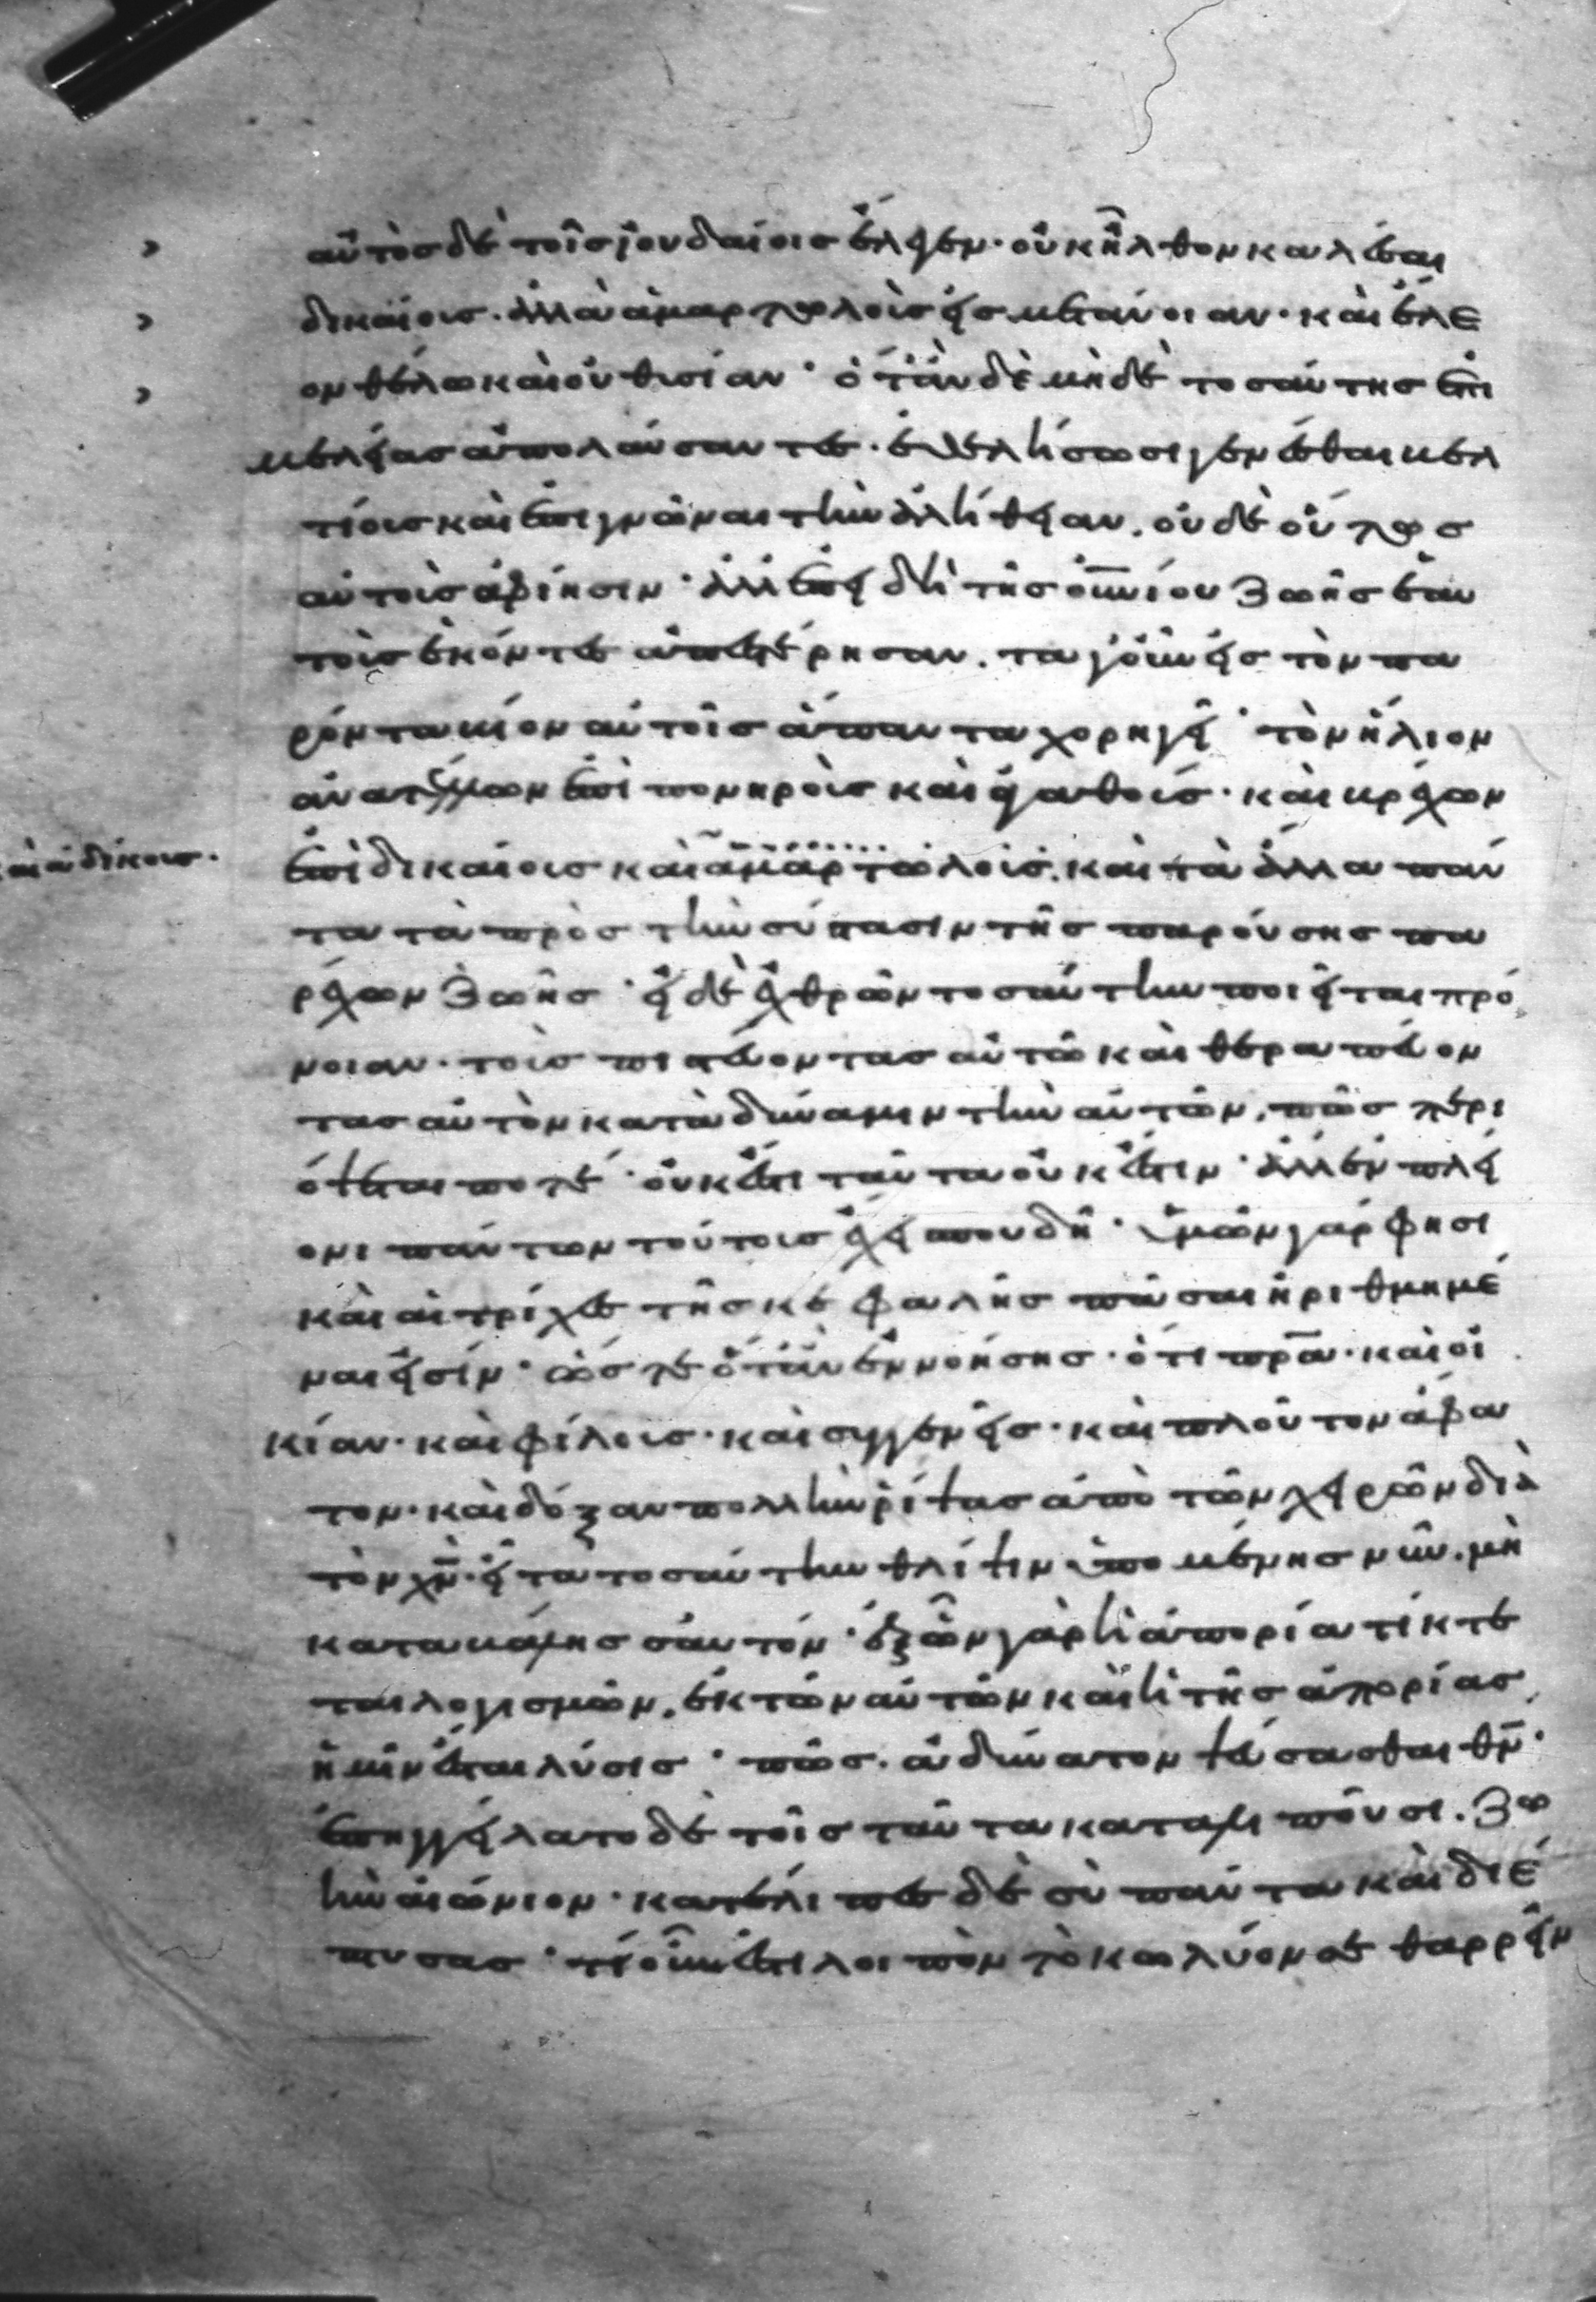 αὐτὸς δὲ τοῖς ἰουδαίοις ἔλεγεν· οὐκ ἦλθον καλέσαι
δικαίους· ἀλλὰ ἁμαρτωλοὺς εἰς μετάνοιαν· καὶ ἔλε
ον θέλω καὶ οὐ θυσίαν· ὅταν δὲ μηδὲ τοσαύτης ἐπι
μελείας ἀπολαύσαντες· ἐθελήσωσι γενέσθαι βελ
τίους καὶ ἐπιγνῶναι τὴν ἀλήθειαν. οὐδὲ οὕτως
αὐτοὺς ἀφίησιν· ἀλλ' ἐπειδὴ τῆς οὐνίου ζωῆς ἑαυ
τοὺς ἑκόντες ἀπεστέρησαν. τὰ γοῦν εἰς τὸν πα
ρόντα βίον αὐτοῖς ἅπαντα χορηγεῖ· τὸν ἥλιον
ἀνατέλλων ἐπὶ πονηροὺς καὶ ἀγαθούς· καὶ βρέχων
καὶ ἀδίκους·
ἐπὶ δικαίους καὶ ἁμαρτωλούς. καὶ τὰ ἄλλα πάν
τα τὰ πρὸς τὴν σύστασιν τῆς παρούσης πα
ρέχων ζωῆς· εἰ δὲ ἐχθρῶν τοσαύτην ποιεῖται πρό
νοιαν· τοὺς πιστεύοντας αὐτῶ καὶ θεραπεύον
τας αὐτὸν κατὰ δύναμιν τὴν αὐτῶν. πῶς περι
όψεταί ποτε· οὐκ ἔστι ταῦτα οὐκ ἔστιν· ἀλλ' ἐν πλεί
ονι πάντων τούτους ἔχει σπουδῆ· ὑμῶν γάρ φησι
καὶ αἱ τρίχες τῆς κεφαλῆς πᾶσαι ἠριθμημέ
ναι εἰσίν· ὥστε ὅταν ἐννοήσης· ὅτι πρα· καὶ οἰ
κίαν· καὶ φίλους· καὶ συγγενεῖς· καὶ πλοῦτον ἄφα
τον· καὶ δόξαν πολλὴν ῥίψας ἀπὸ τῶν χειρῶν διὰ
τὸν χν· εἶτα τοσαύτην θλίψιν ὑπομένης νῦν. μὴ
καταβάλης σαυτόν· ἐξ ὧν γὰρ ἡ ἀπορία τίκτε
ται λογισμῶν. ἐκ τῶν αὐτῶν καὶ ἡ τῆς ἀπορίας
ἡμῖν ἔσται λύσις· πῶς. ἀδύνατον ψεύσασθαι θν·
ἐπηγγείλατο δὲ τοῖς ταῦτα καταλιποῦσι. ζω
ὴν αἰώνιον· κατέλιπες δὲ σὺ πάντα καὶ διέ
πτυσας· τί οὖν ἐστι λοιπὸν τὸ κωλύον σε θαρρεῖν